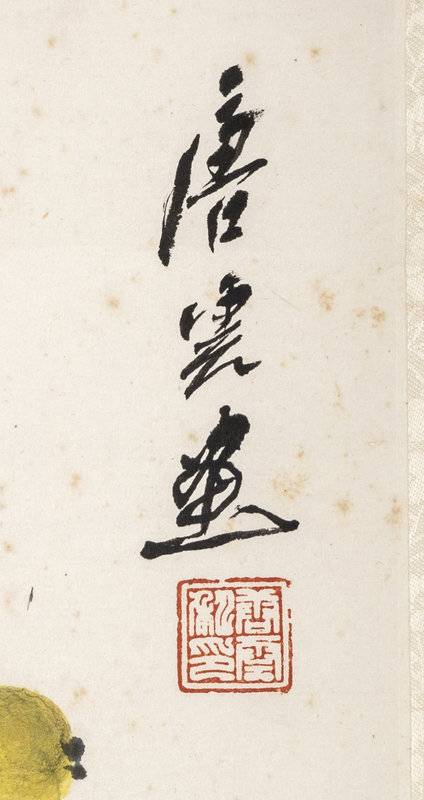 唐雲畫
唐雲私印